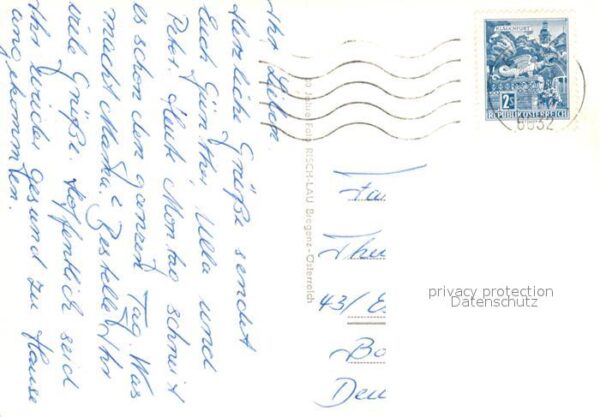 Ihr Lieben.
Herzliche Grüße sendet
Euch Günther Ulla und
Peter. Heute Montag schneit
es schon den ganzen Tag. Was
macht Mama? Bestelle Ihr
viele Grüße. Hoffentlich seid
Ihr wieder gesund zu Hause
angekommen.
RISCH-LAU Bregenz-Österreich
KLAGENFURT
2S
REPUBLIK ÖSTERREICH
6632
Fa
Thu
43/Es
Bo
Deu
privacy protection
Datenschutz